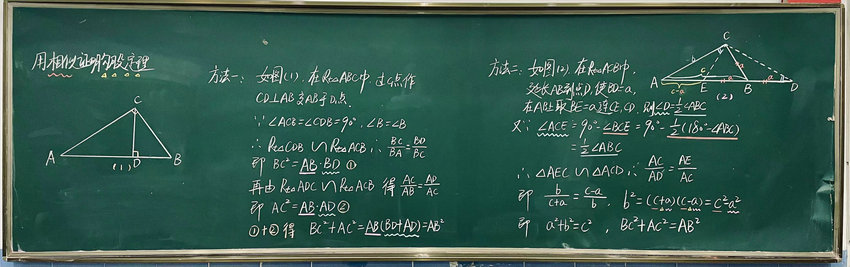 用相似证明勾股定理
C
A
B
D
(1)
方法一: 如图(1), 在Rt△ABC中 过C点作
CD⊥AB交AB于D点.
∵ ∠ACB=∠CDB=90°, ∠B=∠B
∴ Rt△CDB ∽ Rt△ACB ∴ BC/BA = BD/BC
即 BC²=AB·BD ①
再由 Rt△ADC ∽ Rt△ACB 得 AC/AB = AD/AC
即 AC²=AB·AD ②
①+② 得 BC²+AC²=AB(BD+AD)=AB²
方法二: 如图(2), 在Rt△ACB中,
延长AB到点D, 使BD=a,
在AB上取BE=a, 连CE, CD, 则∠D=½∠ABC
又∵ ∠ACE=90°-∠BCE=90°-½(180°-∠ABC)
=½∠ABC
∴ △AEC ∽ △ACD ∴ AC/AD = AE/AC
即 b/(c+a) = (c-a)/b, b²=(c+a)(c-a)=c²-a²
即 a²+b²=c², BC²+AC²=AB²
C
b
a
A
E
B
D
c-a
a
a
(2)